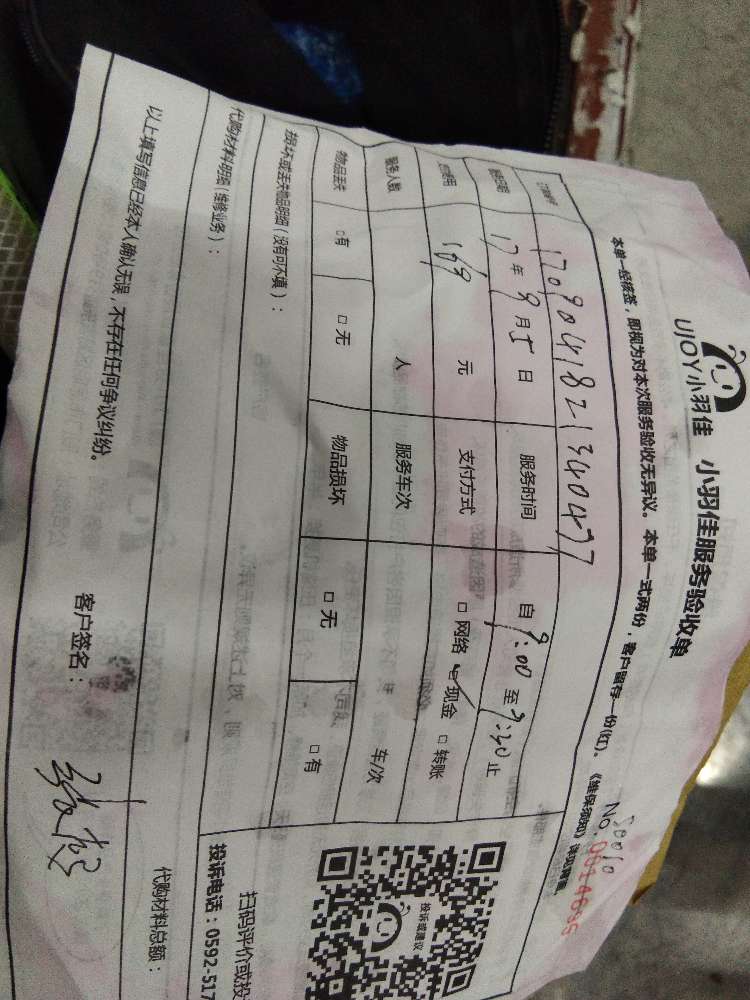 UJOY小羽佳 小羽佳服务验收单
50010
No. 0014695
本单一经核签，即视为对本次服务验收无异议。本单一式两份，客户留存一份(红)。《维保须知》详见背面。
订单编号 1709041821340477
服务日期 17年9月5日 服务时间 自9:00至9:30止
总费用 169 元 支付方式 □网络 ☑现金 □转账
服务人数 人 服务车次 车/次
物品丢失 □有 □无 物品损坏 □无 □有
损坏或丢失物品明细（没有可不填）：
代购材料明细（维修业务）：
代购材料总额：
以上填写信息已经本人确认无误，不存在任何争议纠纷。
客户签名：
投诉或建议
扫码评价或投
投诉电话：0592-517